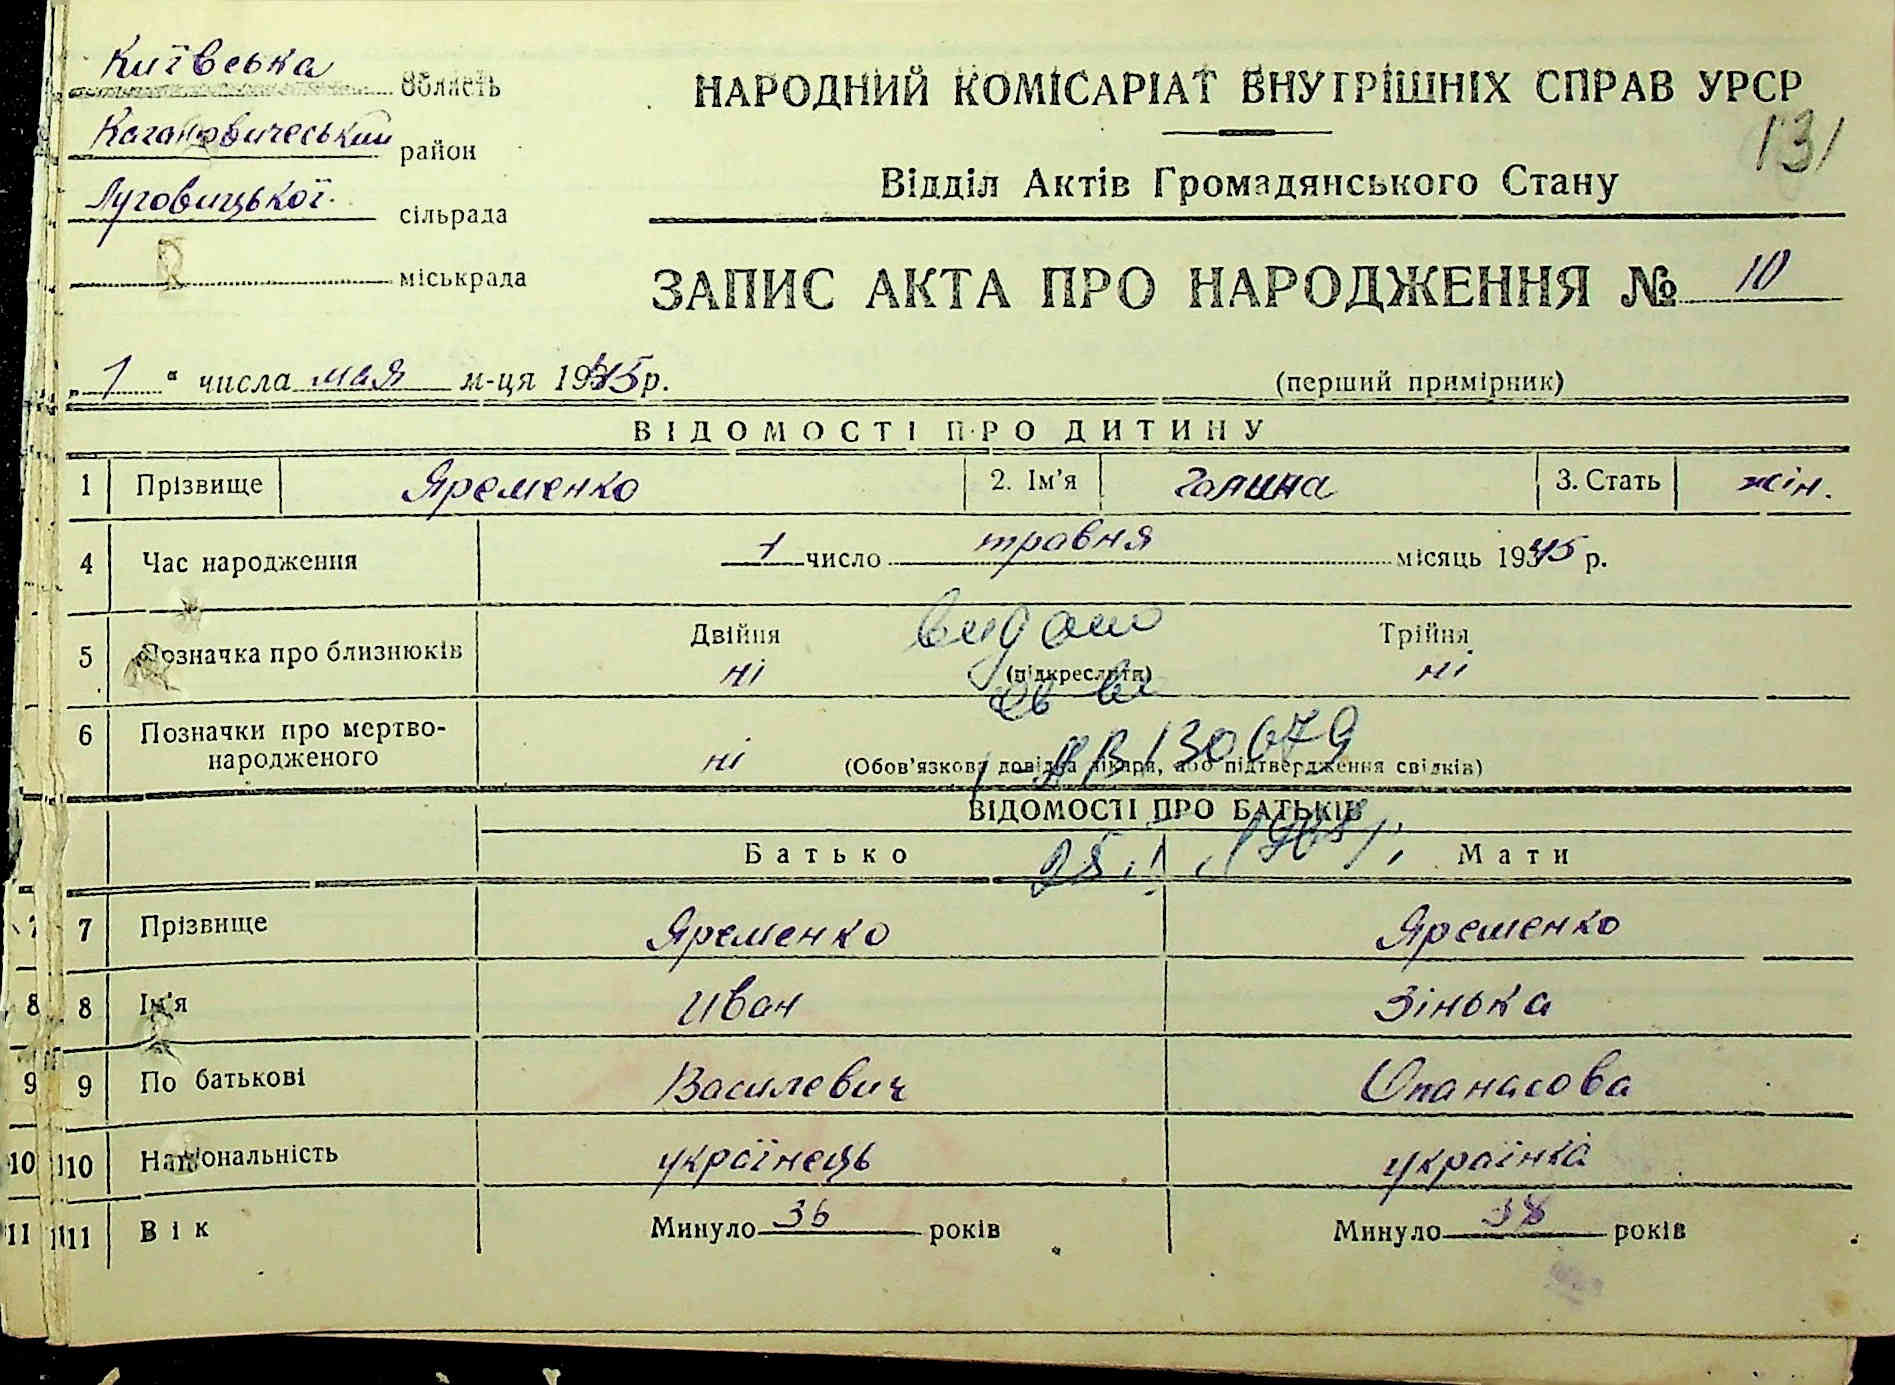 Київська область
Кагановичеський район
Луговицької сільрада
міськрада
НАРОДНИЙ КОМІСАРІАТ ВНУТРІШНІХ СПРАВ УРСР
131
Відділ Актів Громадянського Стану
ЗАПИС АКТА ПРО НАРОДЖЕННЯ № 10
„1" числа мая м-ця 1945 р.
(перший примірник)
ВІДОМОСТІ ПРО ДИТИНУ
1 Прізвище Яременко 2. Ім'я Галина 3. Стать жін.
4 Час народження 1 число травня місяць 1945 р.
5 Позначка про близнюків Двійня ні (підкреслити) Трійня ні
видано
6 Позначки про мертвонародженого ні (Обов'язкова довідка лікаря, або підтвердження свідків)
130679
ВІДОМОСТІ ПРО БАТЬКІВ
Батько Мати
7 Прізвище Яременко Яременко
8 Ім'я Иван Зінька
9 По батькові Василевич Опанасова
10 Національність українець українка
11 Вік Минуло 36 років Минуло 38 років